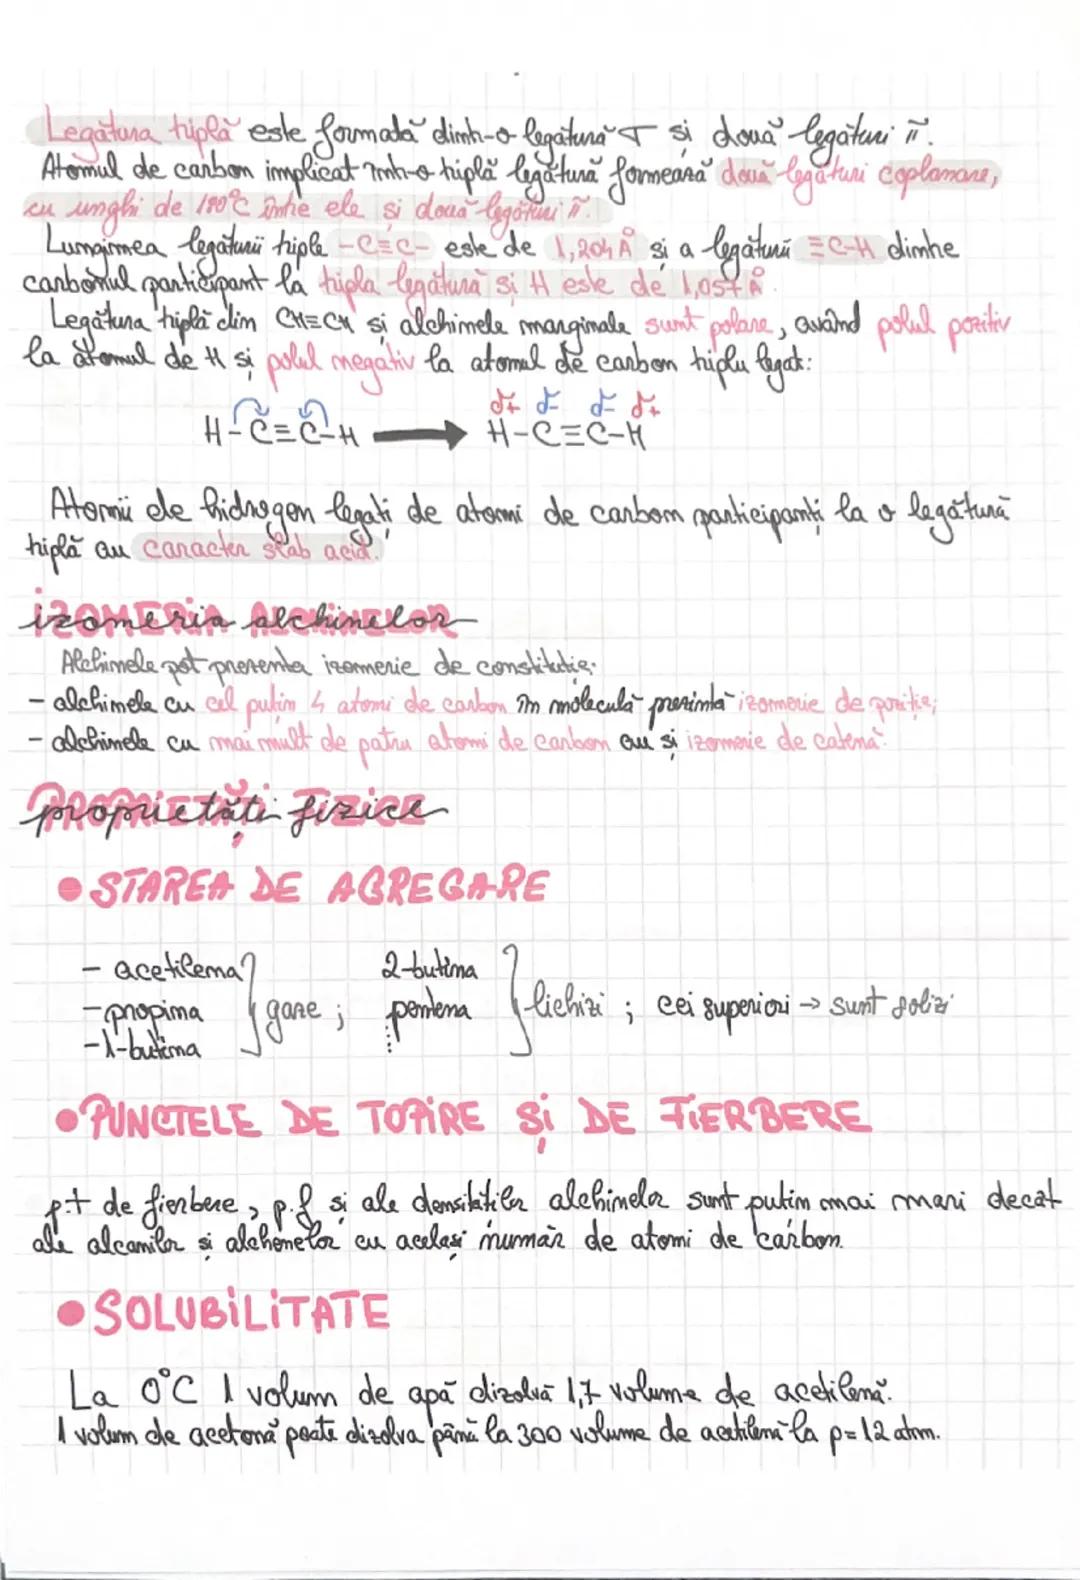 Legătura triplă este formată dintr-o legătură σ și două legături π.
Atomul de carbon implicat într-o triplă legătură formează două legături coplanare,
cu unghi de 180°C între ele și două legături π.
Lungimea legăturii triple -C≡C- este de 1,204 Å și a legăturii ≡C-H dintre
carbonul participant la tripla legătură și H este de 1,057 Å.
Legătura triplă din CH≡CH și alchinele marginale sunt polare, având polul pozitiv
la atomul de H și polul negativ la atomul de carbon triplu legat:
δ+ δ- δ- δ+
H-C≡C-H → H-C≡C-H
Atomii de hidrogen legați de atomi de carbon participanți la o legătură
triplă au caracter slab acid.
izomeria alchinelor
Alchinele pot prezenta izomerie de constituție:
- alchinele cu cel puțin 4 atomi de carbon în moleculă prezintă izomerie de poziție;
- alchinele cu mai mult de patru atomi de carbon au și izomerie de catenă.
proprietăți fizice
• STAREA DE AGREGARE
- acetilena 2-butina
- propina } gaze ; pentena } lichizi ; cei superiori → sunt solizi
- 1-butina
• PUNCTELE DE TOPIRE ȘI DE FIERBERE
p.t de fierbere, p.f și ale densităților alchinelor sunt puțin mai mari decât
ale alcanilor și alchenelor cu același număr de atomi de carbon.
• SOLUBILITATE
La 0°C 1 volum de apă dizolvă 1,7 volume de acetilenă.
1 volum de acetonă poate dizolva până la 300 volume de acetilenă la p=12 atm.